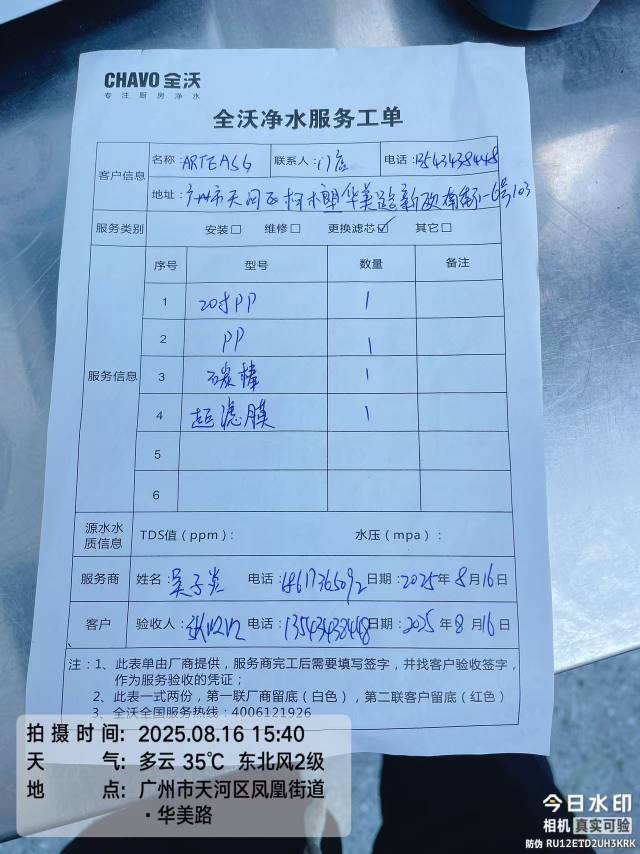 CHAVO 全沃
专注厨房净水
全沃净水服务工单
客户信息 名称：ARTEASG 联系人：门店 电话：13543438448
地址：广州市天河区柯木塱华美路新欧南街1-6号103
服务类别 安装□ 维修□ 更换滤芯☑ 其它□
服务信息 序号 型号 数量 备注
1 20寸PP 1
2 PP 1
3 碳棒 1
4 超滤膜 1
5
6
源水水质信息 TDS值（ppm）： 水压（mpa）：
服务商 姓名： 电话：18617365092 日期：2025年8月16日
客户 验收人： 电话：13543438448 日期：2025年8月16日
注：1、此表单由厂商提供，服务商完工后需要填写签字，并找客户验收签字，
作为服务验收的凭证；
2、此表一式两份，第一联厂商留底（白色），第二联客户留底（红色）
3、全沃全国服务热线：4006121926
拍摄时间：2025.08.16 15:40
天气：多云 35℃ 东北风2级
地点：广州市天河区凤凰街道
·华美路
今日水印
相机 真实可验
防伪 RU12ETD2UH3KRK